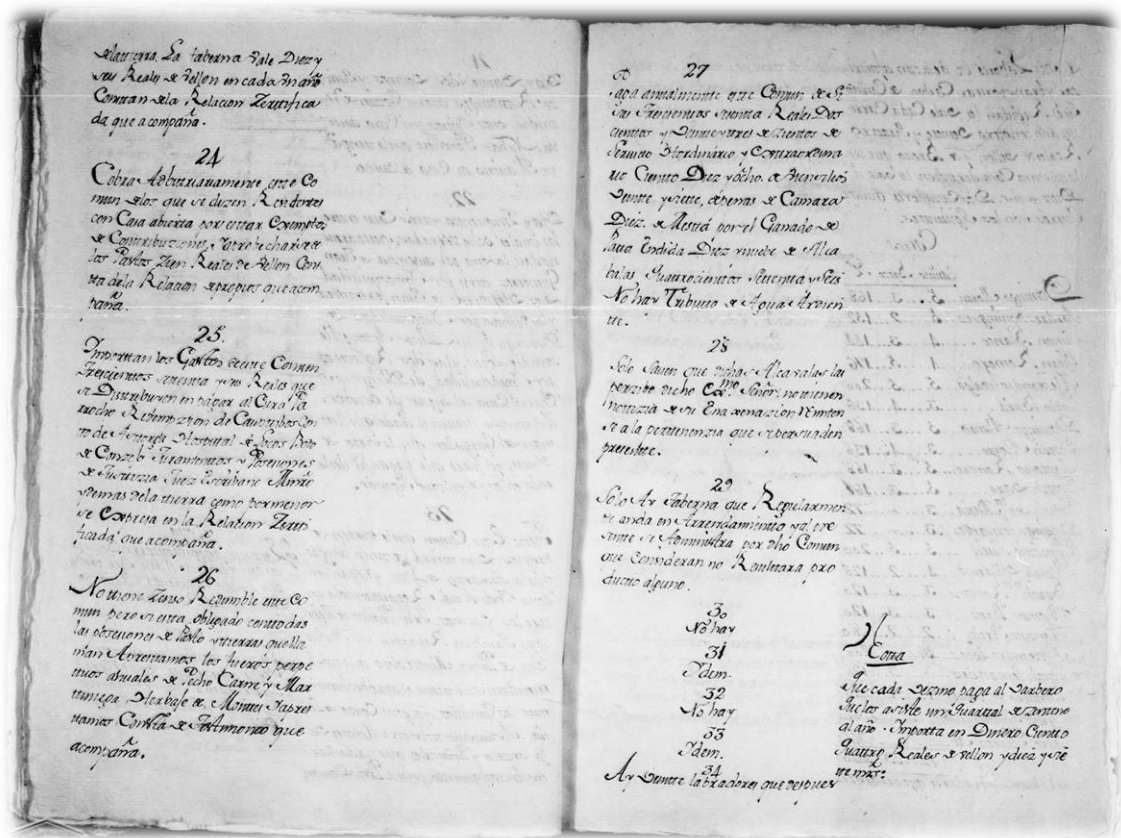 de la tierra. La taberna Vale Diez y
seis Reales de Vellon en cada Vn año
Constan de la Relacion Zertifica
da que acompaña.
24
Cobra Arbitrariamente este Co
mun de los que se dizen Rendentes
con Casa abierta por estar Exemptos
de Contribuziones, y aprobecharse de
los Pastos Zien Reales de Vellon Cons
ta de la Relacion de propios que acom
paña.
25.
Importan los Gastos de este Comun
Trescientos setenta y Reales que
se Distribuien en pagar al Cura Pa
rrocho Redempzion de Cautibos Con
to de Astorga Hospital de Locos Voto
de Conzejo Juramentos y Posesiones
de Justizia Juez Escribano Minro
y demas de la tierra como por menor
se Expresa en la Relazion Zerti
ficada que acompaña.
26
No tiene Zenso Redimible este Co
mun pero si esta obligado con todas
las posesiones de Pasto y tierras que lla
man Apretiamos los fueros perpe
tuos anuales de Pecho Carne y Mar
tiniega Herbaje de Montes
Consta de Testimonio que
acompaña.
27
Paga anualmente este Comun de Si
sas Trescientos setenta Reales Dos
cientos y Veinte y tres de zientos de
Servicio Hordinario y Extraordina
rio Ciento Diez y ocho. de Vtencilios
Veinte y siete, de penas de Camara
Diez. de Mesta por el Ganado de
Pata Endida Diez y nuebe de Alca
balas Quatrocientos Setenta y Seis
No hay Tributo de Agua Ardien
te.
28
Solo Saven que dichas Alcavalas las
perzibe dicho Exmo. Señor: no tienen
notizia de su Enagenazion Remiten
se a la pertenenzia que se persuaden
presente.
29
Solo Ay Taberna que Regularmen
te anda en Arrendamiento y al pre
sente se Administra por dho Comun
que Consideran no Resultara pro
ducto alguno.
30
No hay
31
Ydem.
32
No hay
33
Ydem.
34
Ay Veinte labradores que despues
Nota
Que cada Vezino paga al Barbero
que los asiste un Quartal de zenteno
al año. Importa en Dinero Ciento
Quatro Reales de vellon y diez y sie
te mrs.